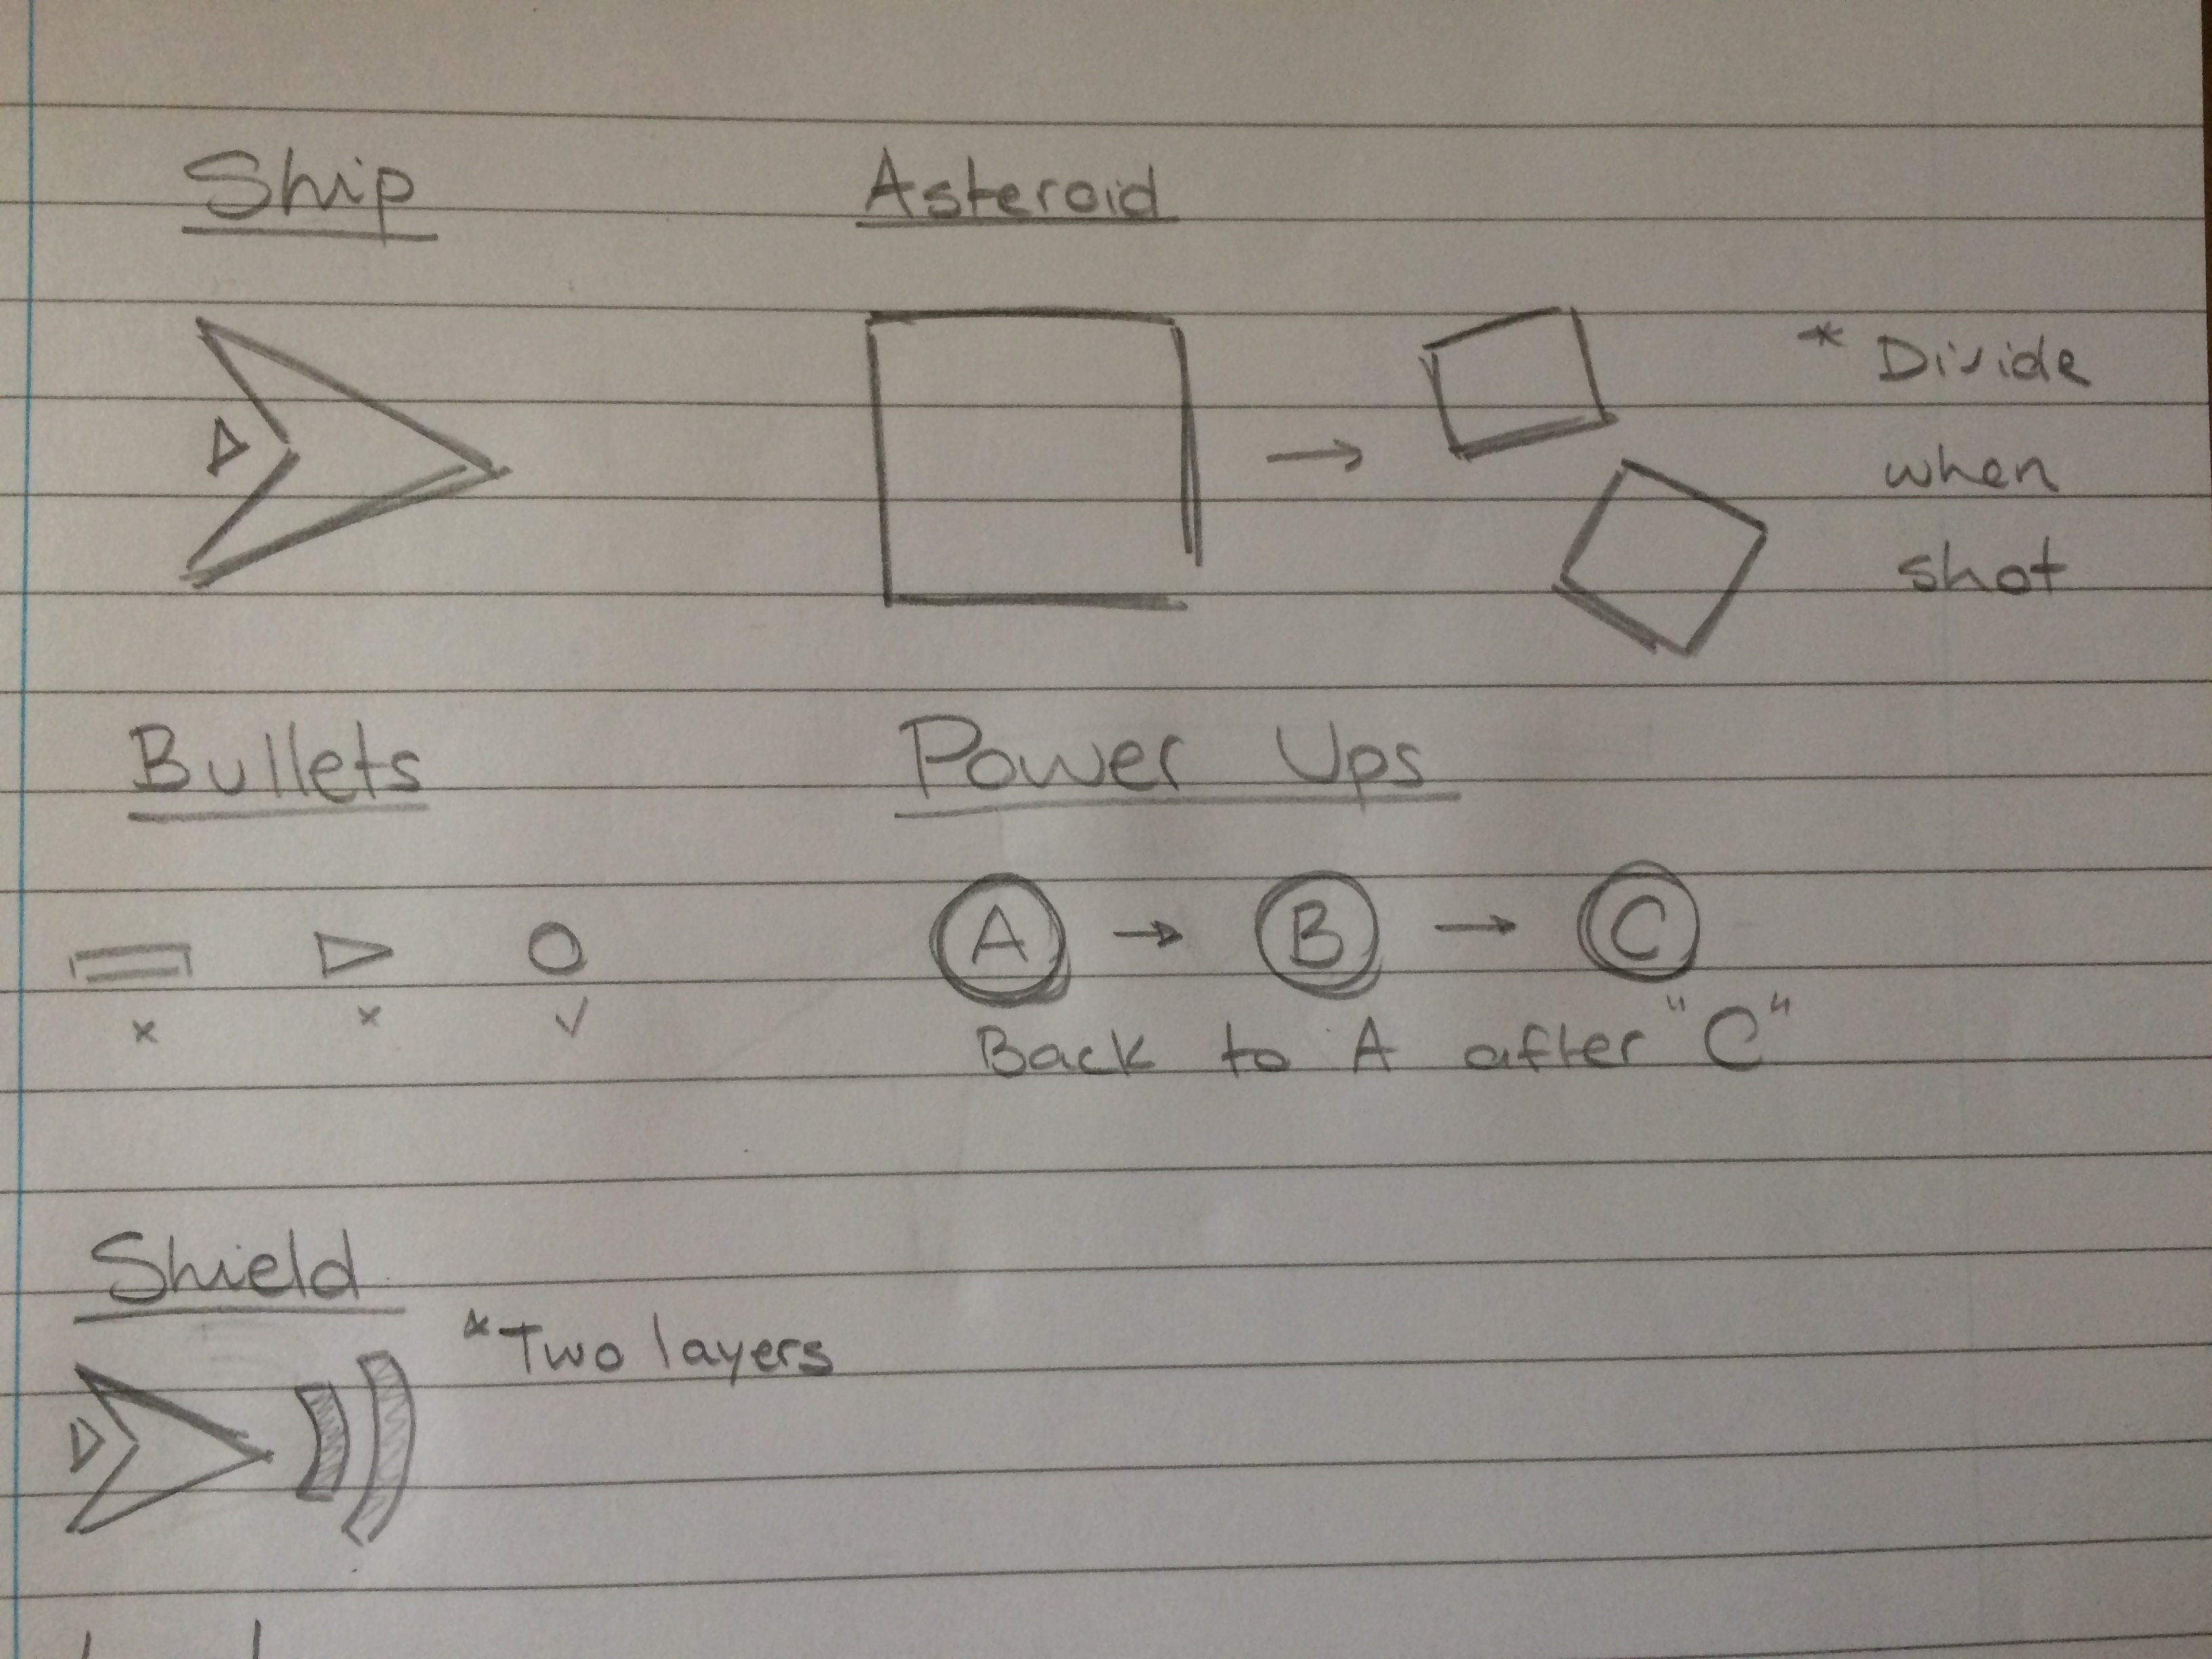 Ship
Asteroid
* Divide
when
shot
Bullets
Power Ups
A → B → C
x x ✓
Back to A after "C"
Shield
* Two layers